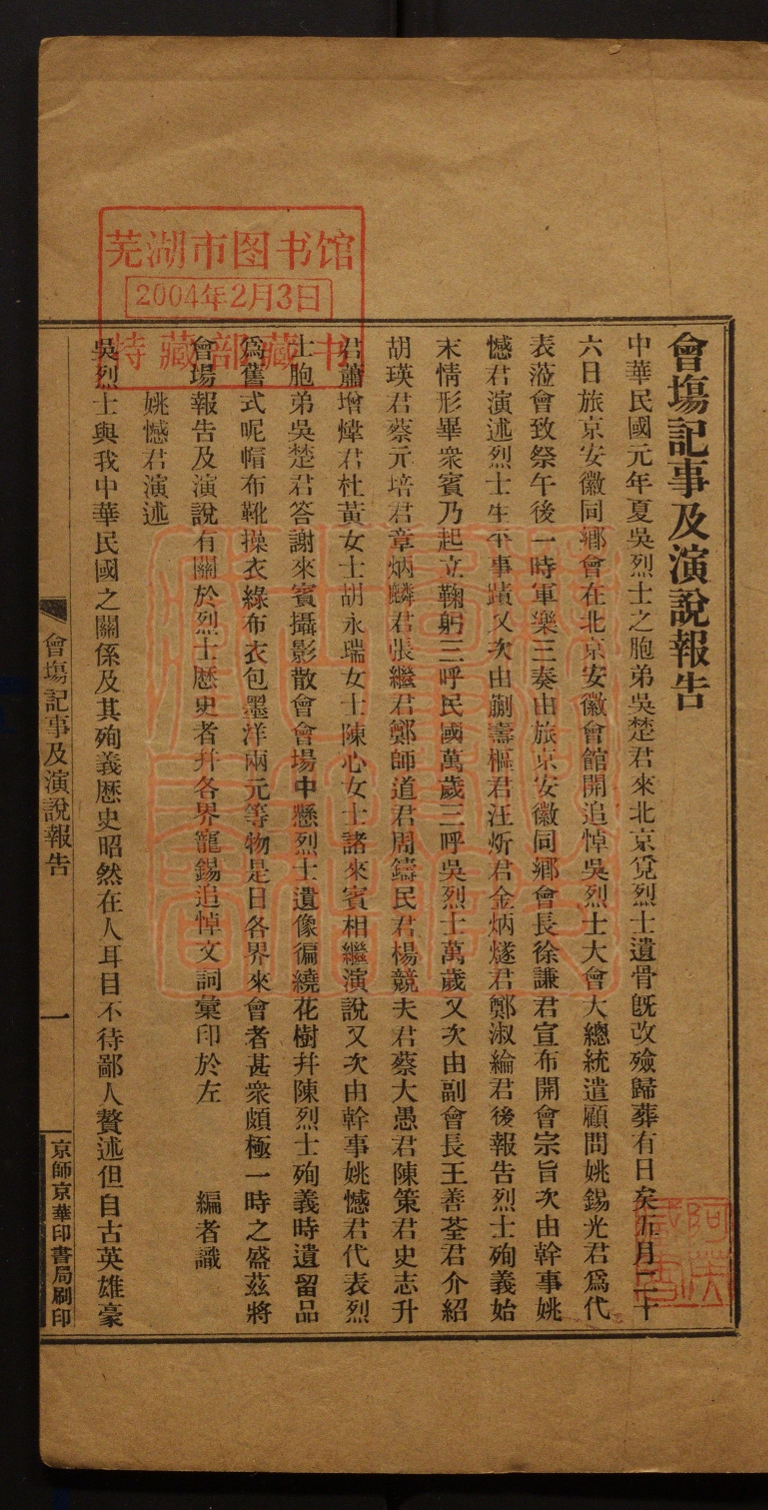 會塲記事及演說報告
中華民國元年夏吳烈士之胞弟吳楚君來北京覓烈士遺骨旣改殮歸葬有日矣五月二十
六日旅京安徽同鄉會在北京安徽會館開追悼吳烈士大會大總統遣顧問姚錫光君爲代
表蒞會致祭午後一時軍樂三奏由旅京安徽同鄉會長徐謙君宣布開會宗旨次由幹事姚
憾君演述烈士生平事蹟又次由蒯壽樞君汪炘君金炳燧君鄭淑綸君後報告烈士殉義始
末情形畢衆賓乃起立鞠躬三呼民國萬歲三呼吳烈士萬歲又次由副會長王善荃君介紹
胡瑛君蔡元培君章炳麟君張繼君鄭師道君周鑄民君楊競夫君蔡大愚君陳策君史志升
君蕭增煒君杜黃女士胡永瑞女士陳心女士諸來賓相繼演說又次由幹事姚憾君代表烈
士胞弟吳楚君答謝來賓攝影散會會場中懸烈士遺像徧繞花樹幷陳烈士殉義時遺留品
爲舊式呢帽布靴操衣綠布衣包墨洋兩元等物是日各界來會者甚衆頗極一時之盛茲將
會場報告及演說有關於烈士歷史者幷各界寵錫追悼文詞彙印於左 編者識
姚憾君演述
吳烈士與我中華民國之關係及其殉義歷史昭然在人耳目不待鄙人贅述但自古英雄豪
會塲記事及演說報告
一
京師京華印書局刷印
芜湖市图书馆
2004年2月3日
特藏部藏书